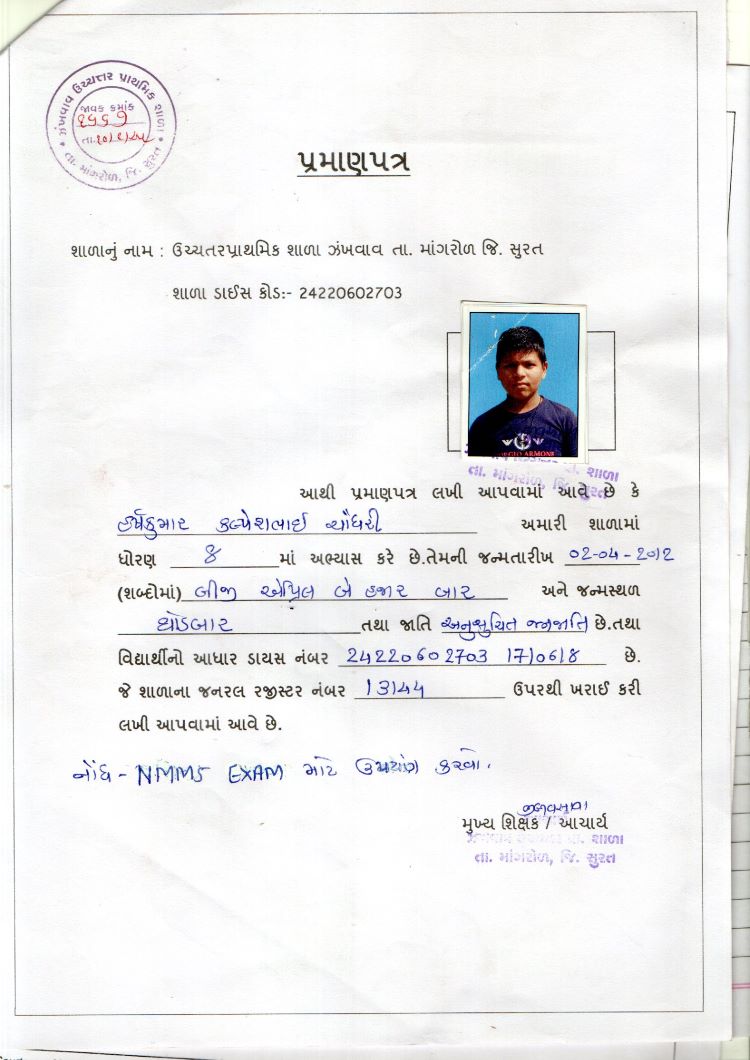 ઝંખવાવ ઉચ્ચત્તર પ્રાથમિક શાળા
જાવક ક્રમાંક
તા.
તા. માંગરોળ, જિ. સુરત
પ્રમાણપત્ર
શાળાનું નામ : ઉચ્ચતરપ્રાથમિક શાળા ઝંખવાવ તા. માંગરોળ જિ. સુરત
શાળા ડાઈસ કોડ:- 24220602703
ARMONI
શાળા
તા. માંગરોળ, જિ. સુરત
આથી પ્રમાણપત્ર લખી આપવામાં આવે છે કે
હર્ષકુમાર કલ્પેશભાઈ ચૌધરી અમારી શાળામાં
ધોરણ 8 માં અભ્યાસ કરે છે.તેમની જન્મતારીખ 02-04-2012
(શબ્દોમાં) બીજી એપ્રિલ બે હજાર બાર અને જન્મસ્થળ
ઘોડબાર તથા જાતિ અનુસુચિત જનજાતિ છે.તથા
વિદ્યાર્થીનો આધાર ડાયસ નંબર 24220602703 170618 છે.
જે શાળાના જનરલ રજીસ્ટર નંબર 13144 ઉપરથી ખરાઈ કરી
લખી આપવામાં આવે છે.
નોંધ - NMMS EXAM માટે ઉપયોગ કરવો.
મુખ્ય શિક્ષક / આચાર્ય
શાળા
તા. માંગરોળ, જિ. સુરત